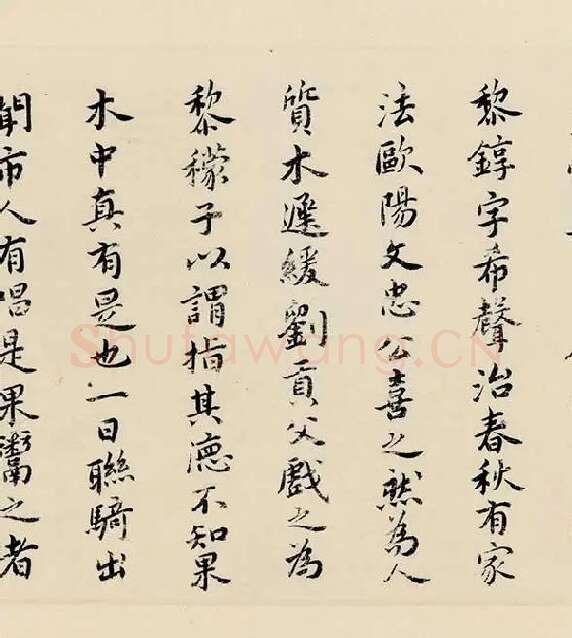 黎錞字希聲治春秋有家
法歐陽文忠公喜之然為人
質木遲緩劉貢父戲之為
黎檬子以謂指其德不知果
木中真有是也一日聯騎出
聞市人有唱是果鬻之者
Shufawang.CN